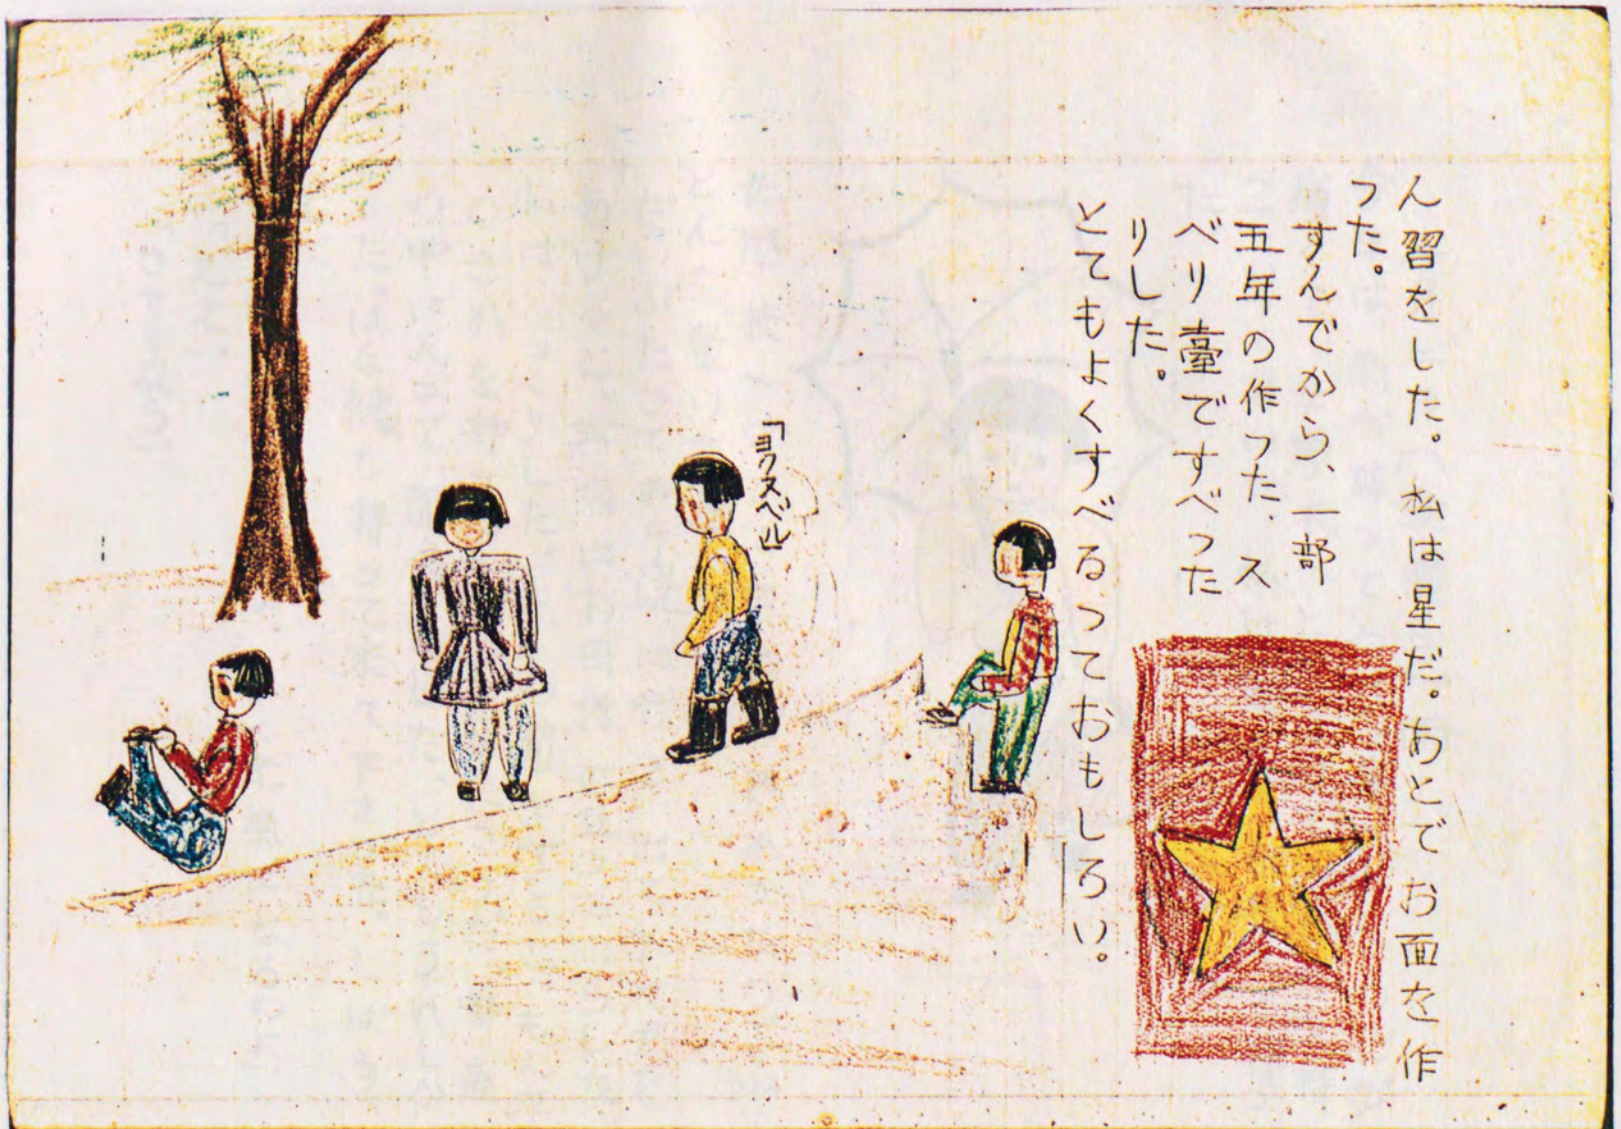 ん習をした。私は星だ。あとでお面を作
った。
すんでから、一部
五年の作った、ス
ベリ臺ですべった
りした。
とてもよくすべるっておもしろい。
「ヨクスベル」